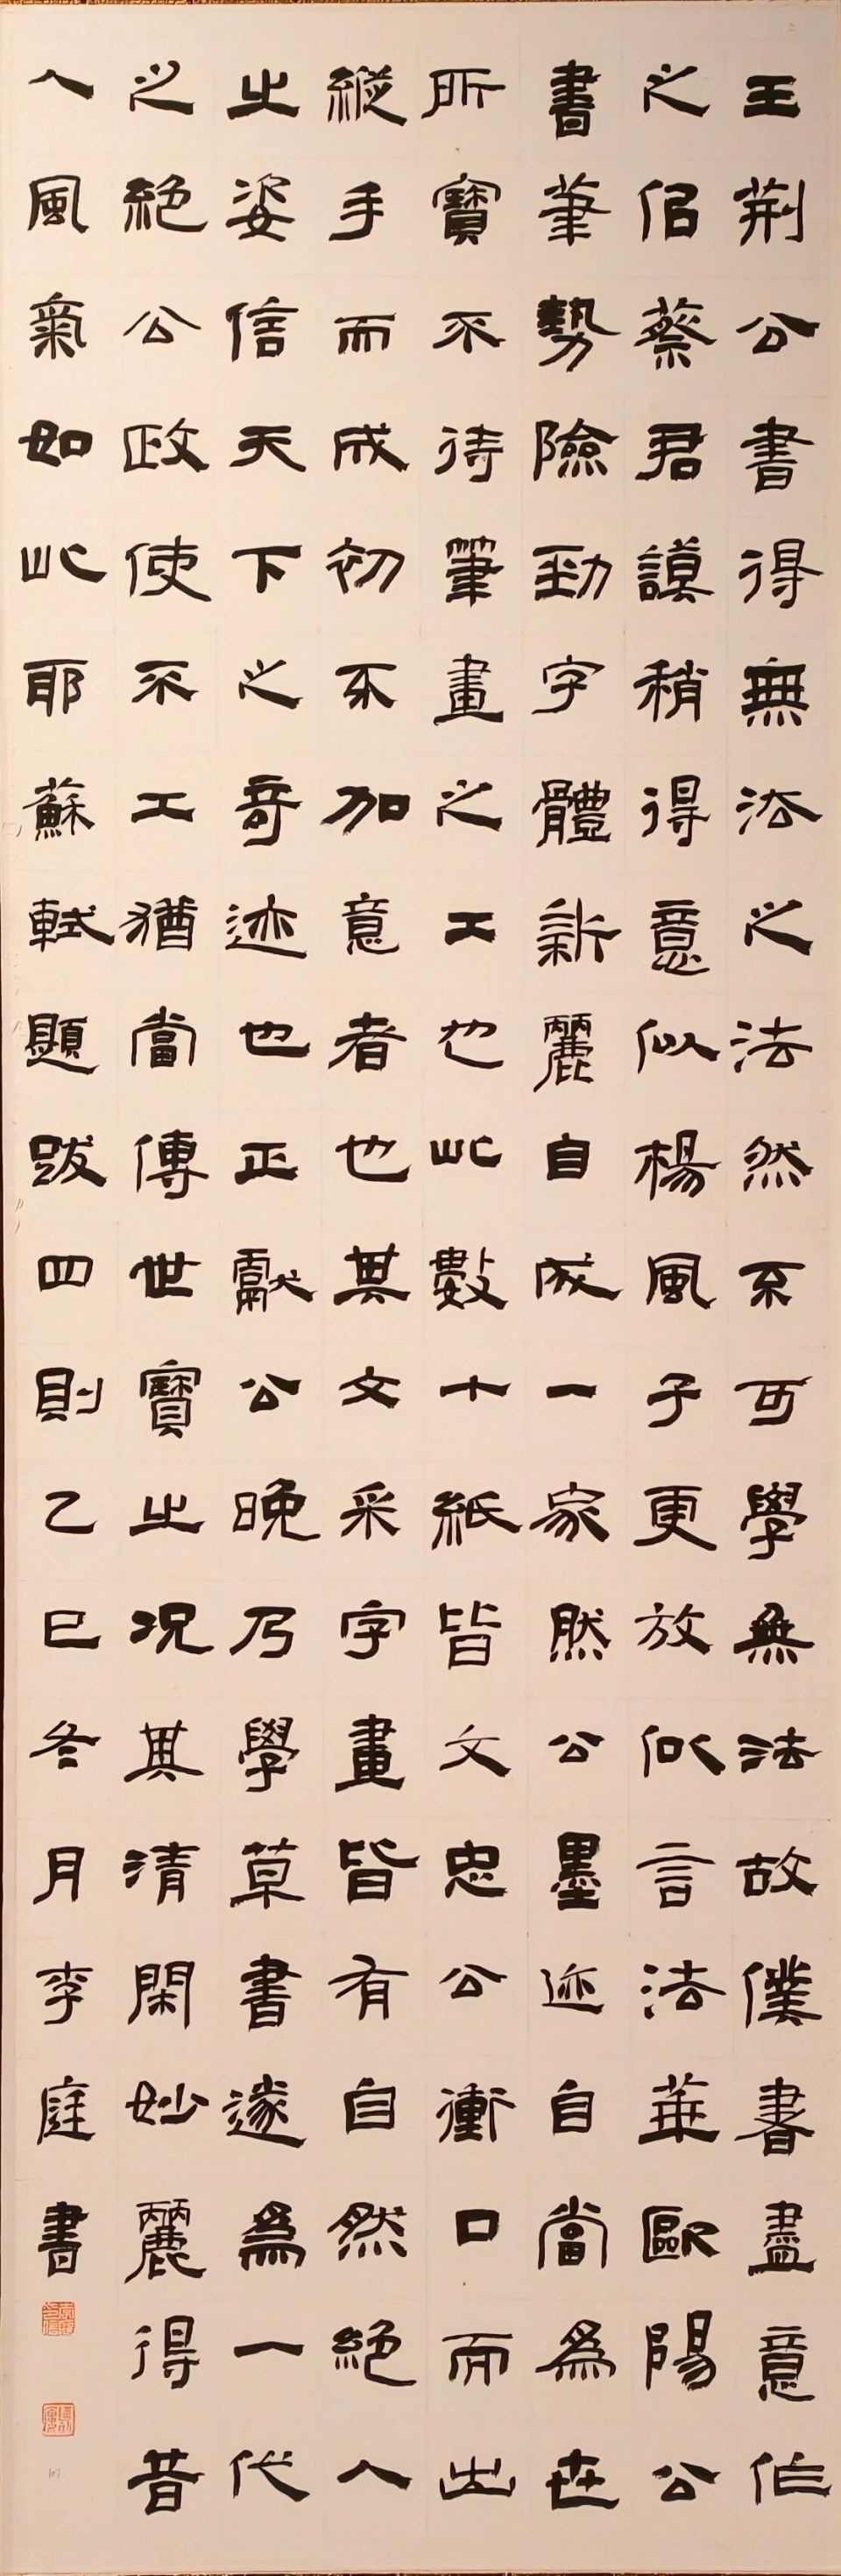 王荆公書得無法之法然不可學無法故僕書盡意作
之佀蔡君謨稍得意似楊風子更放似言法華歐陽公
書筆勢險勁字體新麗自成一家然公墨迹自當為世
所寶不待筆畫之工也此數十紙皆文忠公衝口而出
縱手而成初不加意者也其文采字畫皆有自然絕人
之姿信天下之奇迹也正獻公晚乃學草書遂為一代
之絕公政使不工猶當傳世寶之況其清閑妙麗得昔
人風氣如此耶蘇軾題跋四則乙巳冬月李庭書